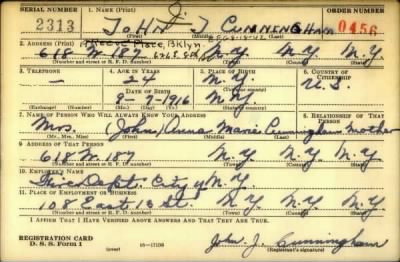 SERIAL NUMBER 1. NAME (Print) ORDER NUMBER
2313 JOHN J CUNNINGHAM 0456
(First) (Middle) (Last)
2. ADDRESS (Print) Place, Bklyn.
618 W. 187 N.Y. N.Y.
(Number and street or R. F. D. number) (Town) (County) (State)
3. TELEPHONE 4. AGE IN YEARS 5. PLACE OF BIRTH 6. COUNTRY OF CITIZENSHIP
— 24 N.Y.
DATE OF BIRTH (Town or county) U.S.
9-7-1916 N.Y.
(Exchange) (Number) (Mo.) (Day) (Yr.) (State or country)
7. NAME OF PERSON WHO WILL ALWAYS KNOW YOUR ADDRESS 8. RELATIONSHIP OF THAT PERSON
Mrs. (John) Anna Marie Cunningham Mother
(Mr., Mrs., Miss) (First) (Middle) (Last)
9. ADDRESS OF THAT PERSON
618 W. 187 N.Y. N.Y. N.Y.
(Number and street or R. F. D. number) (Town) (County) (State)
10. EMPLOYER'S NAME
Dept. City of N.Y.
11. PLACE OF EMPLOYMENT OR BUSINESS
108 East 13 St. N.Y. N.Y. N.Y.
(Number and street or R. F. D. number) (Town) (County) (State)
I AFFIRM THAT I HAVE VERIFIED ABOVE ANSWERS AND THAT THEY ARE TRUE.
REGISTRATION CARD
D. S. S. Form 1 (over) John J. Cunningham
(Registrant's signature)